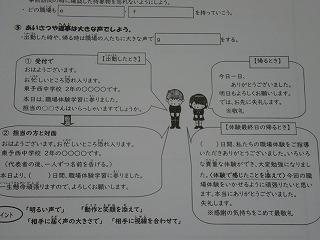 ・どの職場も e　　　f　　　を持っていこう。
⑤ あいさつや返事は大きな声でしょう。
・出勤した時や、帰る時は職場の人たちに大きな声で g　　　をする。
【出勤したとき】
① 受付で
おはようございます。
お忙しいところ恐れ入ります。
東予西中学校 2年の〇〇〇〇です。
本日は、職場体験学習に参りました。
担当の〇〇さんはいらっしゃいますでしょうか。
② 担当の方と対面
おはようございます。お忙しいところ恐れ入ります。
東予西中学校 2年の〇〇〇〇です。
（代表者の後、一人ずつ名前を告げる。）
本日より、（　　）日間、職場体験学習に参りました。
一生懸命頑張りますので、よろしくお願いします。
【帰るとき】
今日一日、
ありがとうございました。
明日もよろしくお願いします。
では、お先に失礼します。
※敬礼
【体験最終日の帰るとき】
（　　）日間、私たちの職場体験をご指導
いただきありがとうございました。いろいろ
な貴重な体験ができ、大変勉強になりまし
た。（体験で感じたことを添えて）今回の職
場体験をいかせるように頑張りたいと思い
ます。本当にありがとうございました。
失礼します。
※感謝の気持ちをこめて最敬礼
イント
「明るい声で」　「動作と笑顔を添えて」
「相手に届く声の大きさで」　「相手に視線を合わせて」